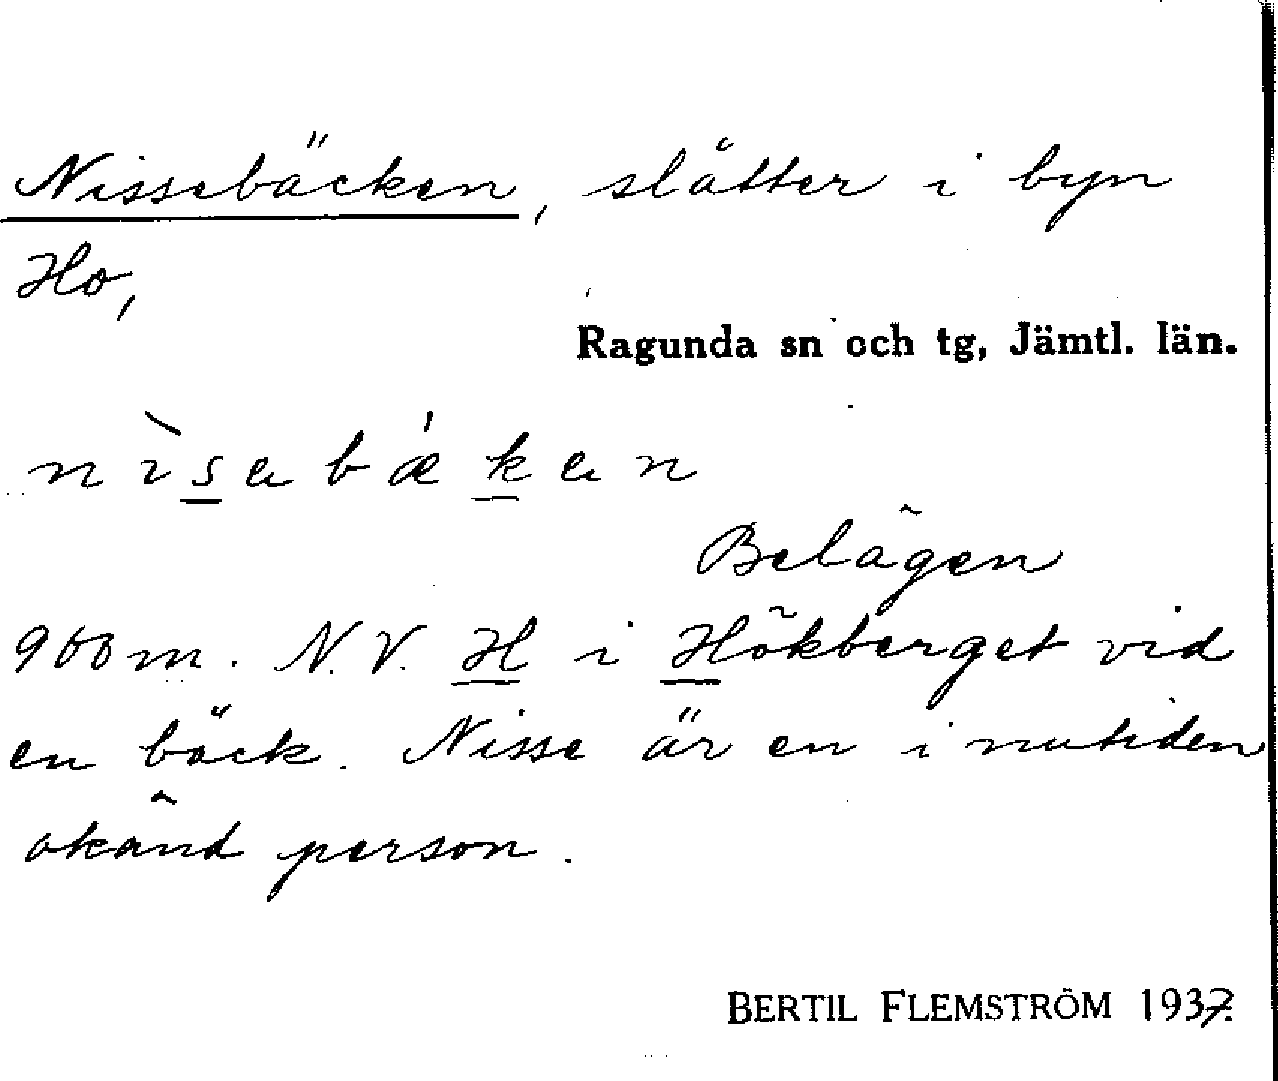 Nissebäcken, slåtter i byn
Ho,
Ragunda sn och tg, Jämtl. län.
nìsebǽken
Belägen
900 m. N.V. H i Hökberget vid
en bäck. Nisse är en i nutiden
okänd person.
BERTIL FLEMSTRÖM 1937.